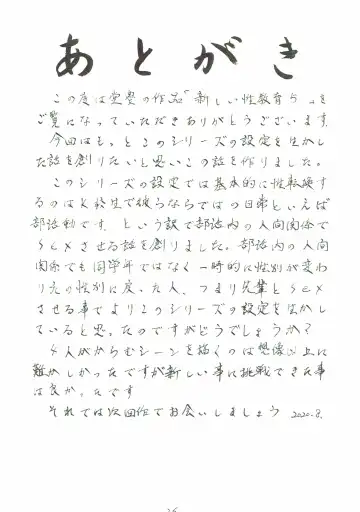 あとがき
この度は堂豊の作品「新しい性教育5」を
ご覧になっていただきありがとうございます。
今回はもっとこのシリーズの設定を生かし
た話を創りたいと思いこの話を作りました。
このシリーズの設定では基本的に性転換す
るのはK校生で彼らならではの日常といえば
部活動です、という訳で部活内の人間関係で
SEXさせる話を創りました。部活内の人間
関係でも同学年ではなく一時的に性別が変わ
り元の性別に戻った人、つまり先輩とSEX
させる事でよりこのシリーズの設定を生かし
ていると思ったのですがどうでしょうか?
4人がからむシーンを描くのは想像以上に
難かしかったですが新しい事に挑戦できた事
は良かったです
それでは次回作でお会いしましょう 2020.8.
26